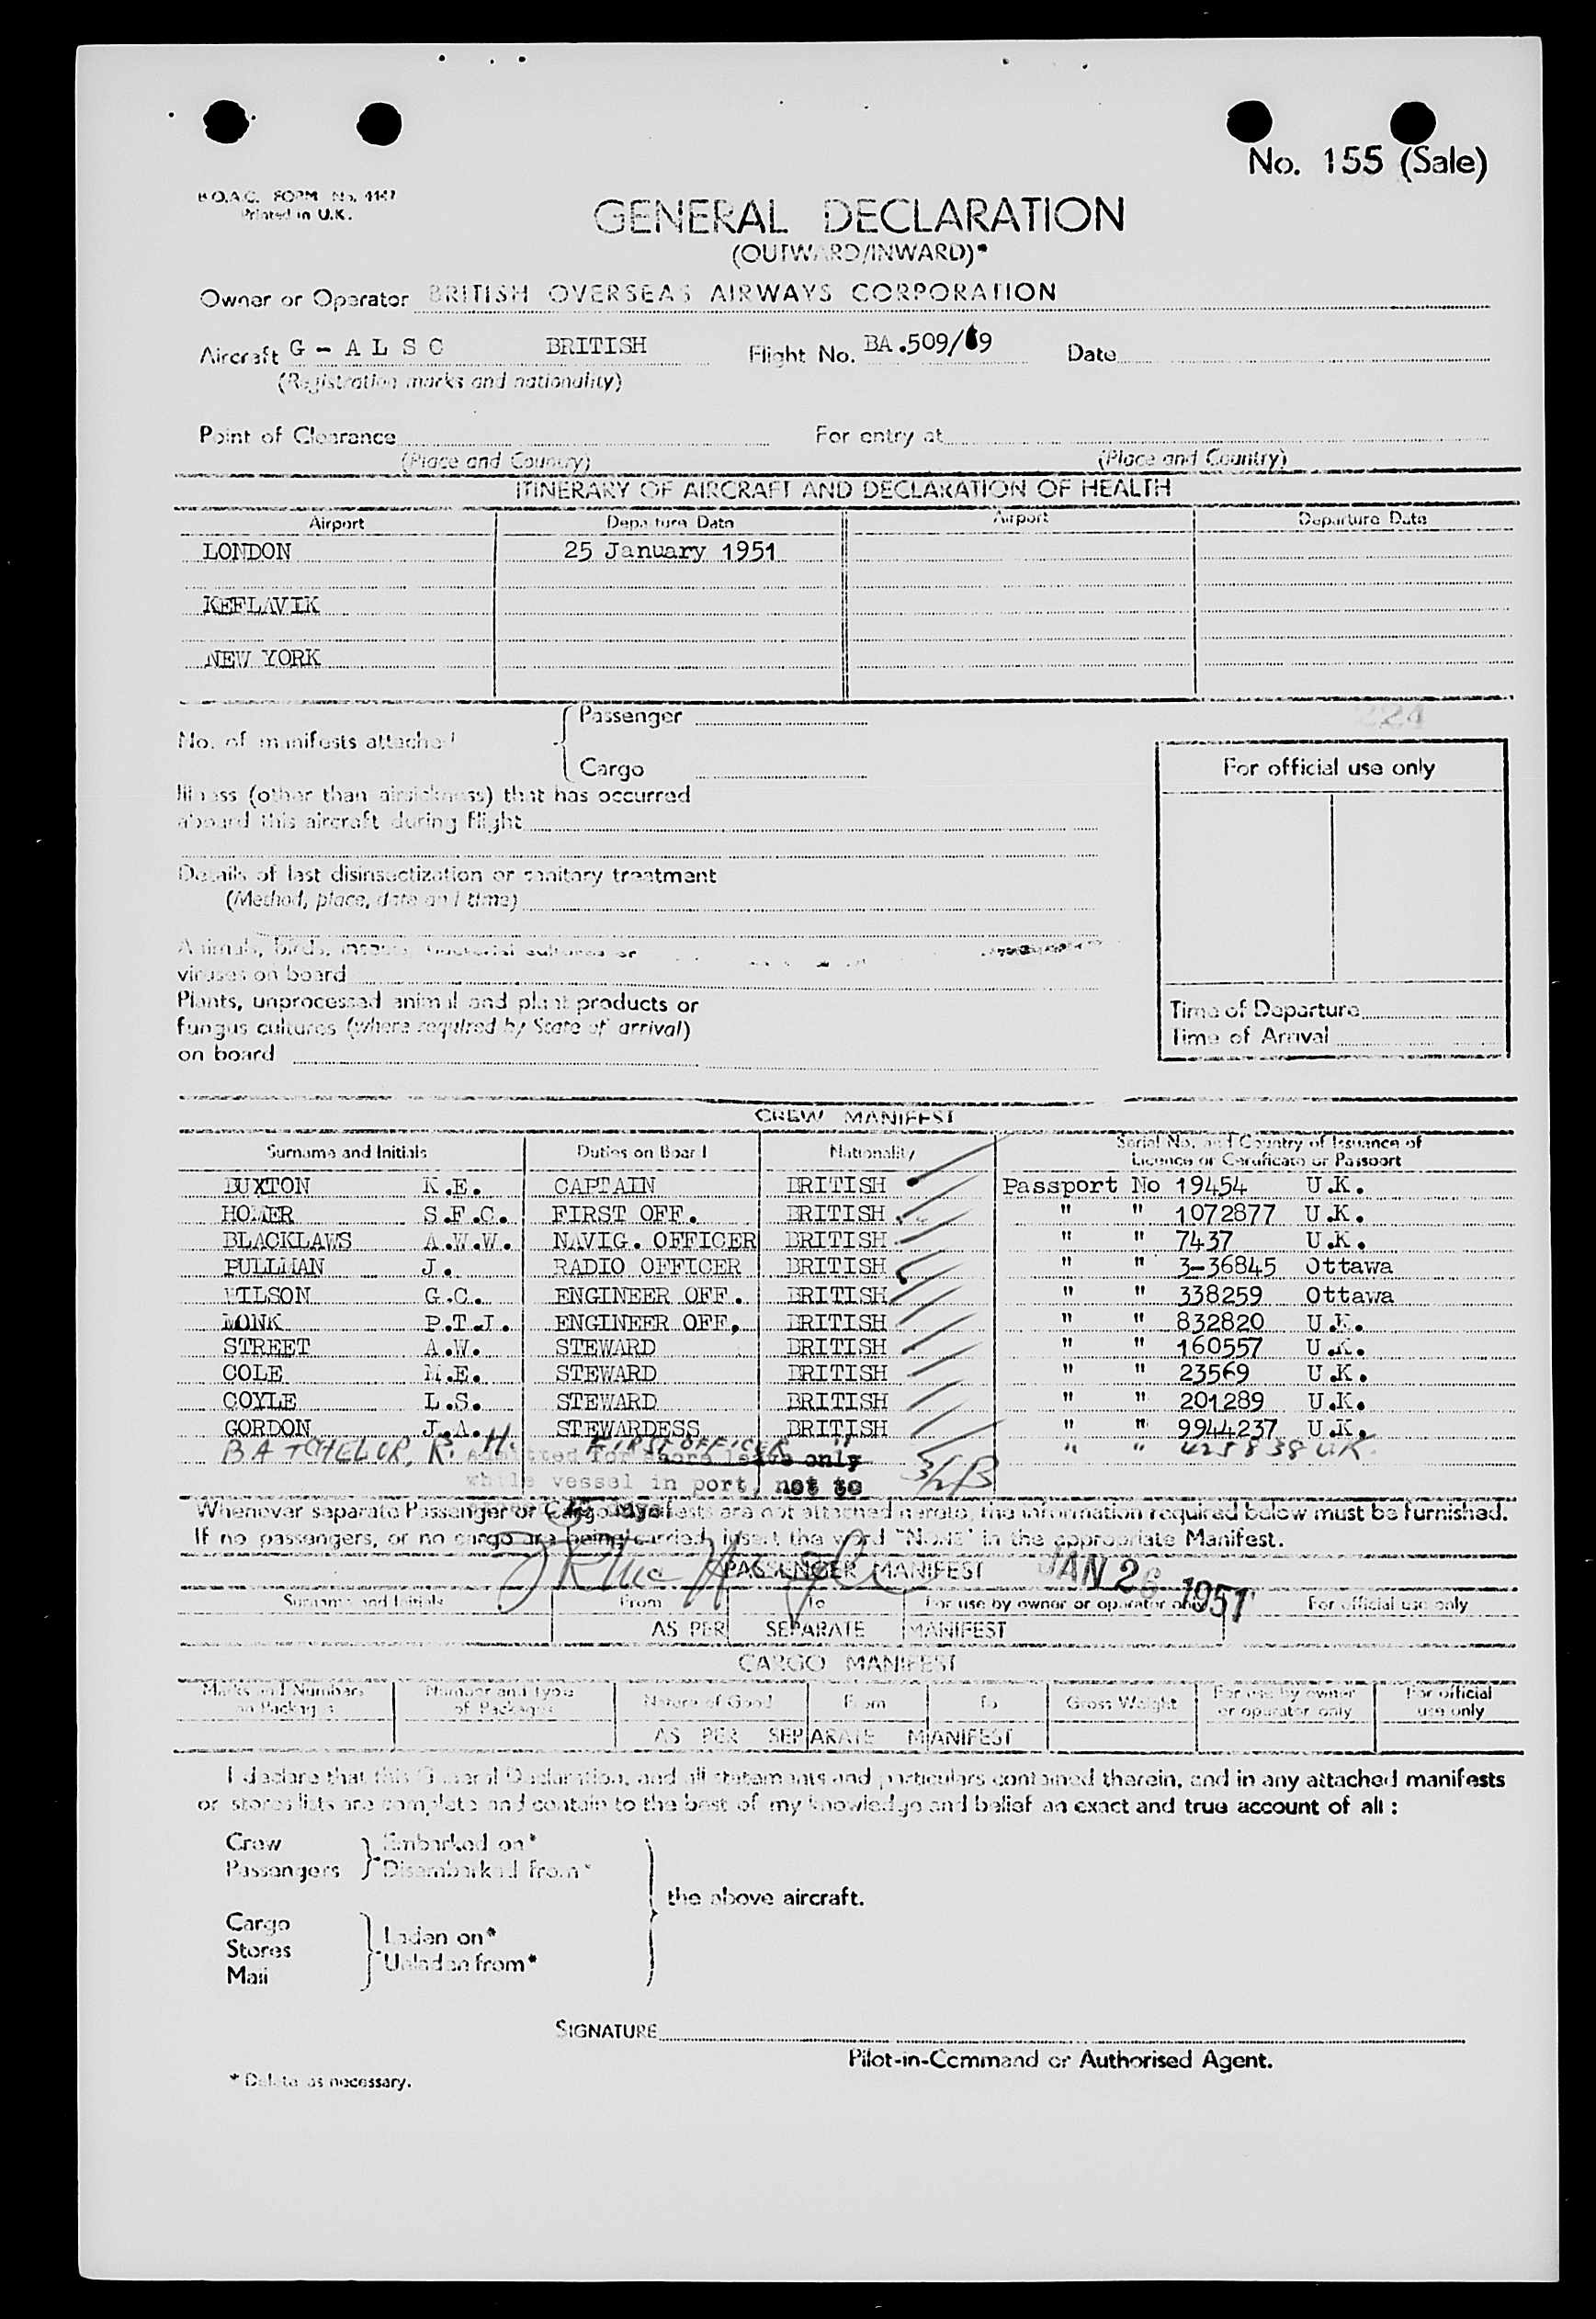 No. 155 (Sale)
B.O.A.C. FORM No. 4147
Printed in U.K.
GENERAL DECLARATION
(OUTWARD/INWARD)*
Owner or Operator BRITISH OVERSEAS AIRWAYS CORPORATION
Aircraft G - A L S C BRITISH Flight No. BA.509/69 Date
(Registration marks and nationality)
Point of Clearance For entry at
(Place and Country) (Place and Country)
ITINERARY OF AIRCRAFT AND DECLARATION OF HEALTH
Airport Departure Date Airport Departure Date
LONDON 25 January 1951
KEFLAVIK
NEW YORK
224
No. of manifests attached { Passenger
Cargo
For official use only
Illness (other than airsickness) that has occurred
aboard this aircraft during flight
Details of last disinsectization or sanitary treatment
(Method, place, date and time)
Animals, birds, insects, bacterial cultures or
viruses on board
Plants, unprocessed animal and plant products or
fungus cultures (where required by State of arrival)
on board
Time of Departure
Time of Arrival
CREW MANIFEST
Surname and Initials Duties on Board Nationality Serial No. and Country of Issuance of
Licence or Certificate or Passport
BUXTON K.E. CAPTAIN BRITISH Passport No 19454 U.K.
HOMER S.F.C. FIRST OFF. BRITISH " " 1072877 U.K.
BLACKLAWS A.W.W. NAVIG. OFFICER BRITISH " " 7437 U.K.
PULLMAN J. RADIO OFFICER BRITISH " " 3-36845 Ottawa
WILSON G.C. ENGINEER OFF. BRITISH " " 338259 Ottawa
MONK P.T.J. ENGINEER OFF. BRITISH " " 832820 U.K.
STREET A.W. STEWARD BRITISH " " 160557 U.K.
COLE M.E. STEWARD BRITISH " " 23569 U.K.
COYLE L.S. STEWARD BRITISH " " 201289 U.K.
GORDON J.A. STEWARDESS BRITISH " " 9944237 U.K.
BATCHELOR, R. H. FIRST OFFICER " " " UK
Admitted for shore leave only
while vessel in port, not to
Whenever separate Passenger or Cargo Manifests are not attached hereto, the information required below must be furnished.
If no passengers, or no cargo are being carried, insert the word "None" in the appropriate Manifest.
PASSENGER MANIFEST JAN 26 1951
Surname and Initials From To For use by owner or operator only For official use only
AS PER SEPARATE MANIFEST
CARGO MANIFEST
Marks and Numbers on Packages Number and type of Packages Nature of Good From To Gross Weight For use by owner or operator only For official use only
AS PER SEPARATE MANIFEST
I declare that this General Declaration, and all statements and particulars contained therein, and in any attached manifests
or stores lists are complete and contain to the best of my knowledge and belief an exact and true account of all :
Crew } Embarked on*
Passengers } Disembarked from*
the above aircraft.
Cargo
Stores } Laden on*
Mail } Unladen from*
SIGNATURE
Pilot-in-Command or Authorised Agent.
* Delete as necessary.